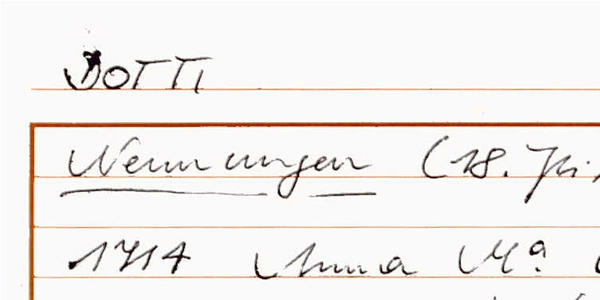 DOTTI
Nennungen (18. Ju
1714 Anna Mª